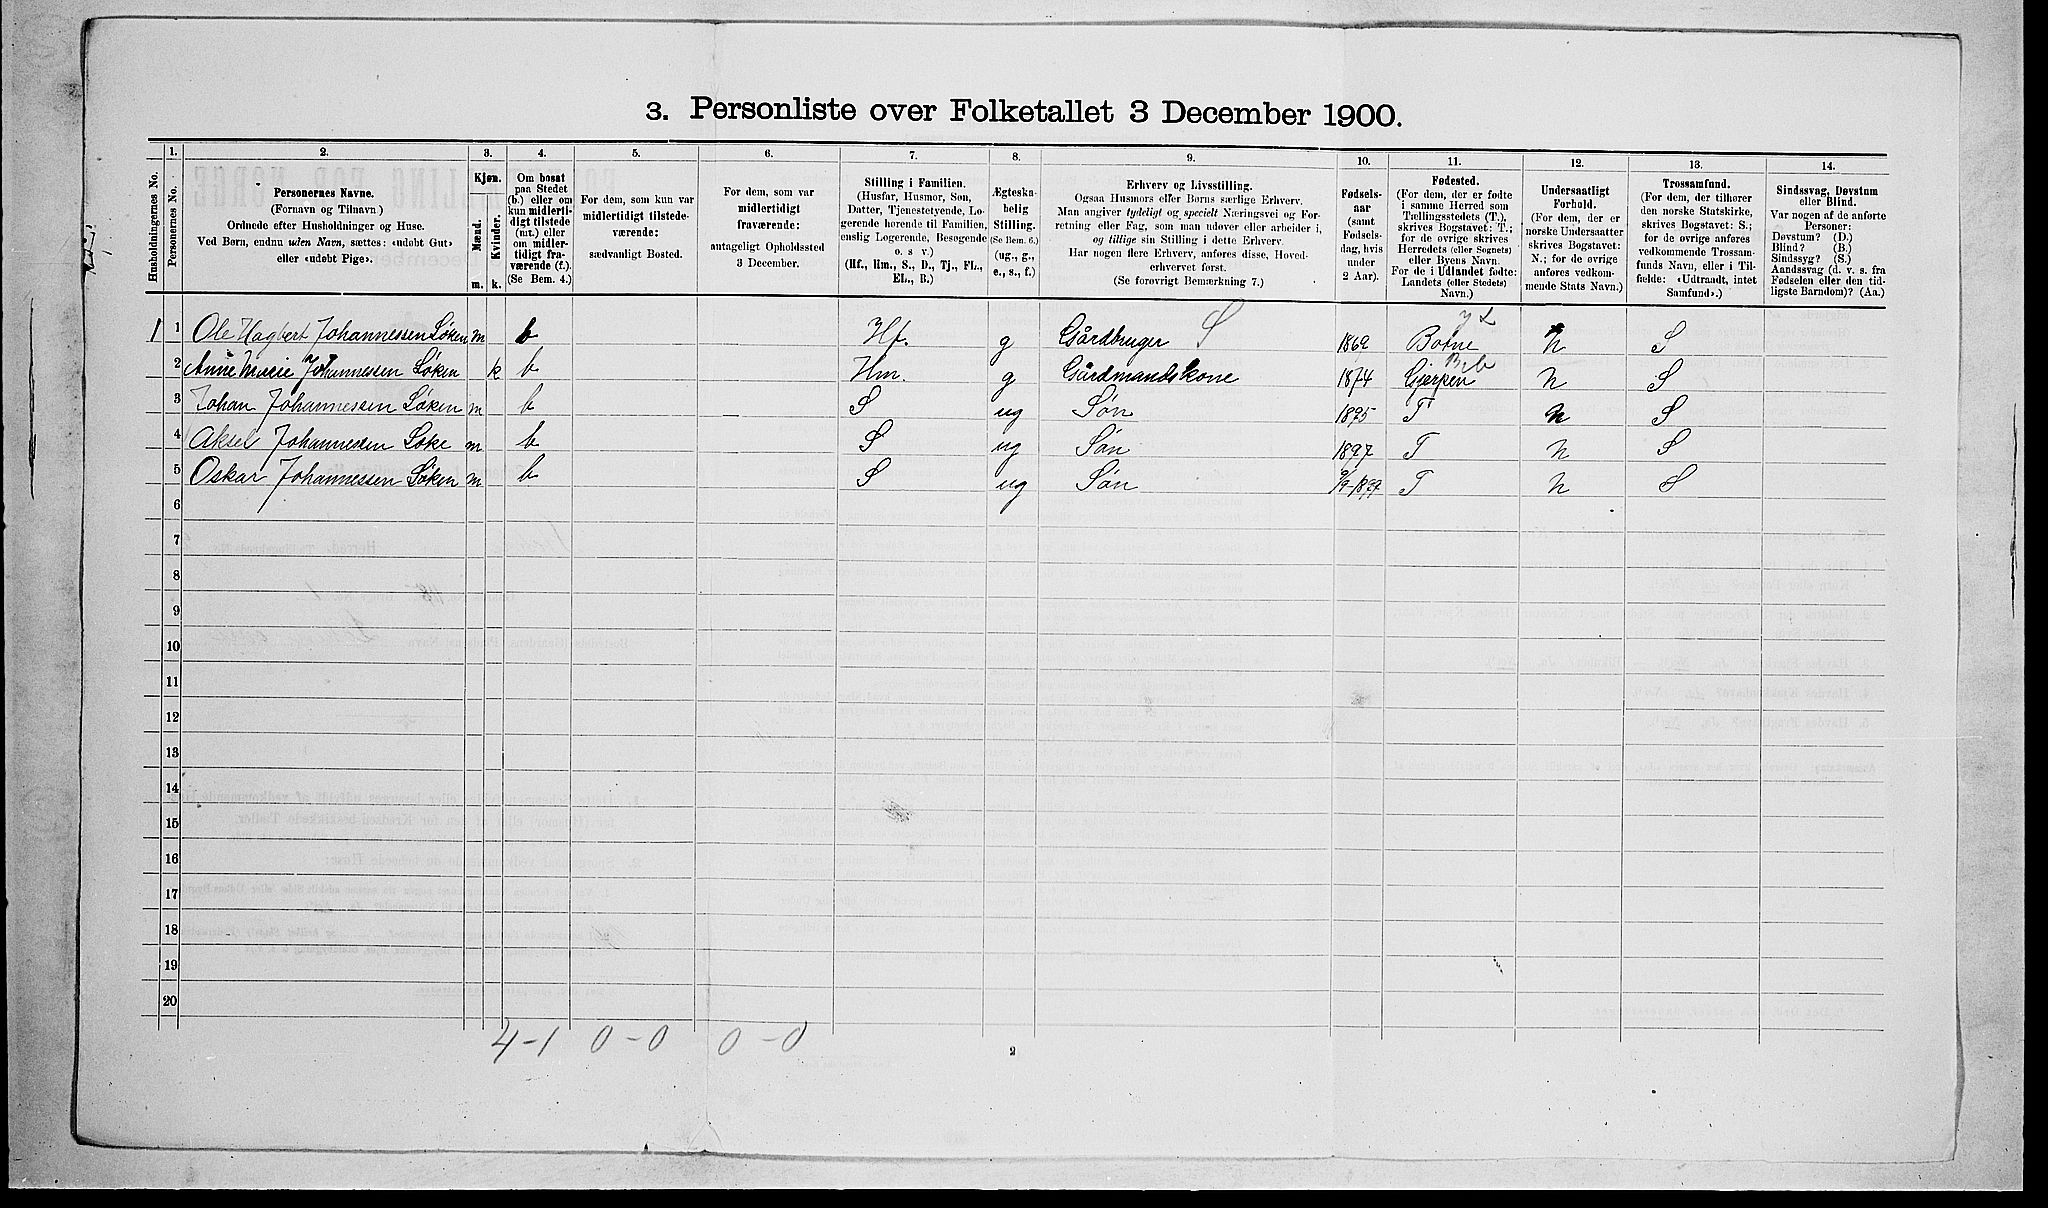 3. Personliste over Folketallet 3 December 1900.
1. 2. 3. 4. 5. 6. 7. 8. 9. 10. 11. 12. 13. 14.
Husholdningernes No.
Personernes No.
Personernes Navne.
(Fornavn og Tilnavn)
Ordnede efter Husholdninger og Huse.
Ved Børn, endnu uden Navn, sættes: «udøbt Gut»
eller «udøbt Pige».
Kjøn.
Mænd.
Kvinder.
m. k.
Om bosat
paa Stedet
(b.) eller om
kun midlerti-
digt tilstede
(mt.) eller
om midler-
tidigt fra-
værende (f.).
(Se Bem. 4.)
For dem, som kun var
midlertidigt tilstede-
værende:
sædvanligt Bosted.
For dem, som var
midlertidigt
fraværende:
antageligt Opholdssted
3 December.
Stilling i Familien.
(Husfar, Husmor, Søn,
Datter, Tjenestetyende, Lo-
gerende hørende til Familien,
enslig Logerende, Besøgende
o. s v.)
(Hf., Hm., S., D., Tj., FL.,
EL., B.)
Ægteska-
belig
Stilling.
(Se Bem. 6.)
(ug., g.,
e., s., f.)
Erhverv og Livsstilling.
Ogsaa Husmors eller Børns særlige Erhverv.
Man angiver tydeligt og specielt Næringsvei og For-
retning eller Fag, som man udøver eller arbeider i,
og tillige sin Stilling i dette Erhverv.
Har nogen flere Erhverv, anføres disse, Hoved-
erhvervet først.
(Se forøvrigt Bemærkning 7.)
Fødsels-
aar
(samt
Fødsels-
dag, hvis
under
2 Aar).
Fødested.
(For dem, der er fødte
i samme Herred som
Tællingsstedets (T.),
skrives Bogstavet: T.;
for de øvrige skrives
Herredets (eller Sognets)
eller Byens Navn.
For de i Udlandet fødte:
Landets (eller Stedets)
Navn.)
Undersaatligt
Forhold.
(For dem, der er
norske Undersaatter
skrives Bogstavet:
N.; for de øvrige
anføres vedkom-
mende Stats Navn.)
Trossamfund.
(For dem, der tilhører
den norske Statskirke,
skrives Bogstavet: S.;
for de øvrige anføres
vedkommende Trossam-
funds Navn, eller i Til-
fælde: «Udtraadt, intet
Samfund».)
Sindssvag, Døvstum
eller Blind.
Var nogen af de anførte
Personer:
Døvstum? (D.)
Blind? (B.)
Sindssyg? (S.)
Aandssvag (d. v. s. fra
Fødselen eller den tid-
ligste Barndom)? (Aa.)
1 1 Ole Hagbert Johannessen Løken m b Hf. g Gårdbruger S 1869 Botne N S
2 Anne Marie Johannessen Løken k b Hm. g Gårdmandskone 1874 Gjerpen N S
3 Johan Johannessen Løken m b S ug Søn 1895 T N S
4 Aksel Johannessen Løke m b S ug Søn 1897 T N S
5 Oskar Johannessen Løken m b S ug Søn T N S
6
7
8
9
10
11
12
13
14
15
16
17
18
19
20
4-1 0-0 0-0
2